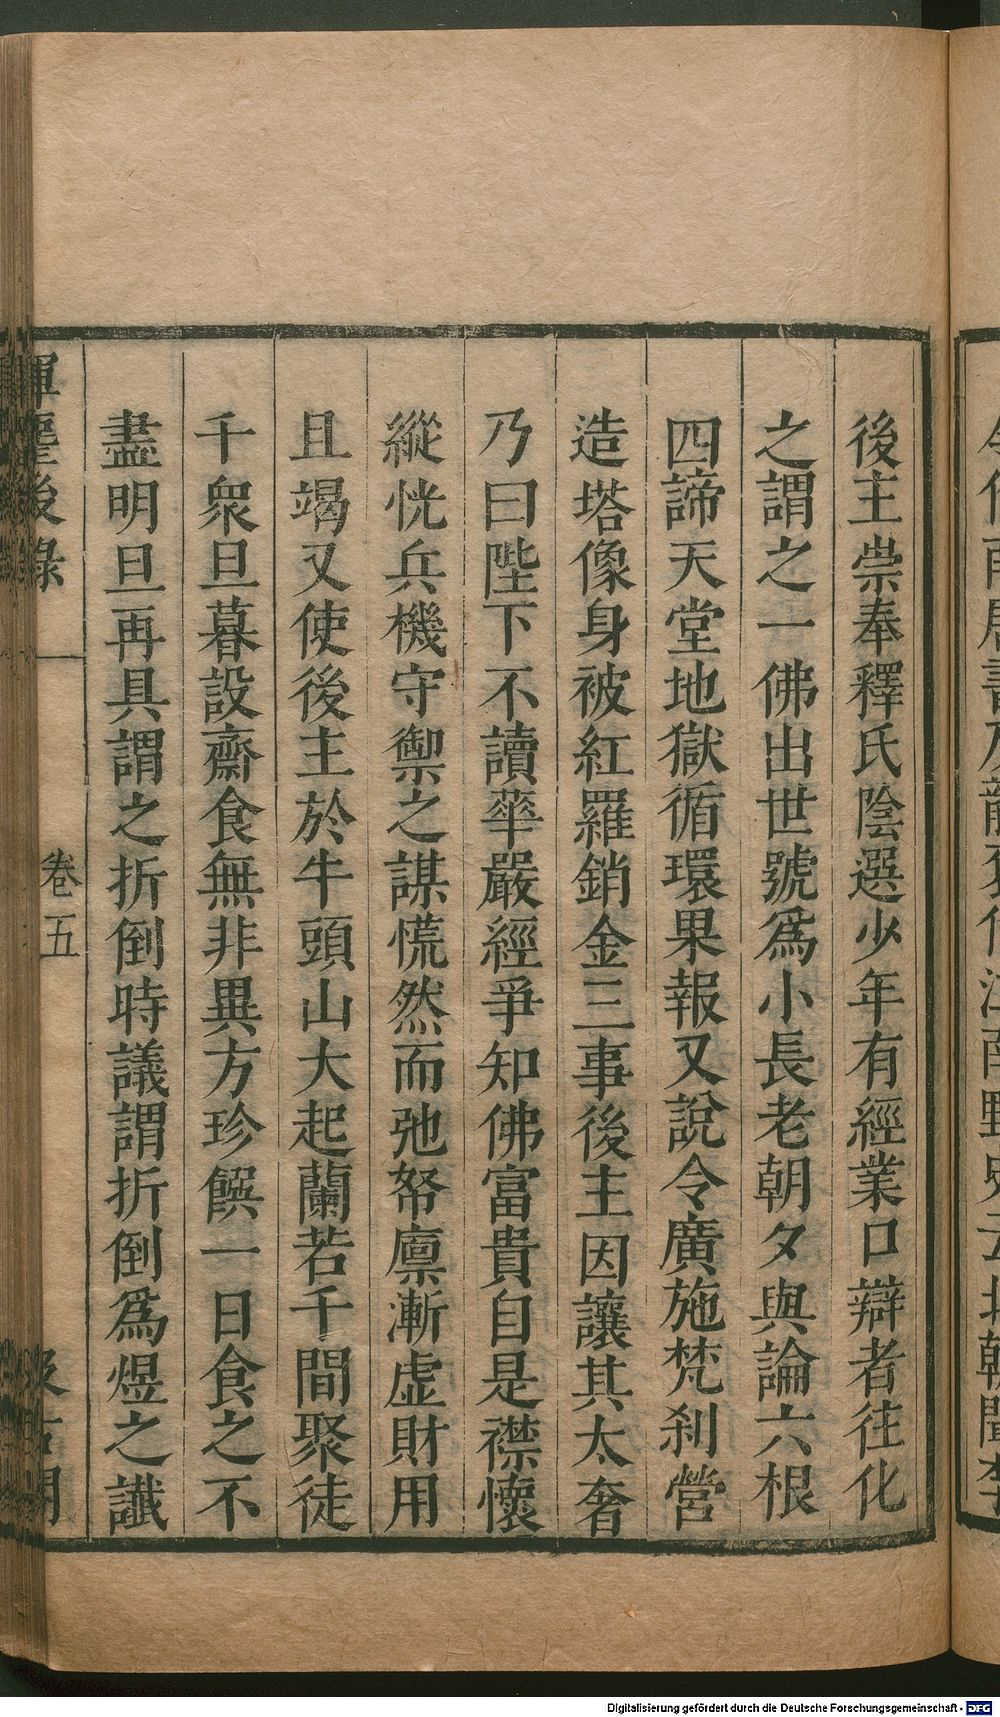 後主崇奉釋氏陰選少年有經業口辯者往化
之謂之一佛出世號爲小長老朝夕與論六根
四諦天堂地獄循環果報又說令廣施梵刹營
造塔像身被紅羅銷金三事後主因讓其太奢
乃曰陛下不讀華嚴經爭知佛富貴自是襟懷
縱恍兵機守禦之謀慌然而弛帑廪漸虚財用
且竭又使後主於牛頭山大起蘭若千間聚徒
千衆旦暮設齋食無非異方珍饌一日食之不
盡明旦再具謂之折倒時議謂折倒爲煜之讖
後錄
卷五
Digitalisierung gefördert durch die Deutsche Forschungsgemeinschaft - DFG